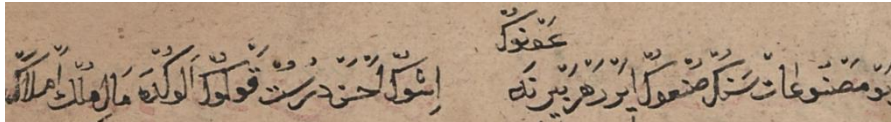 عونوڭ
بو مصنوعات سنڭ صنعوڭ ايرر هر بيرنه اشوڭ احسن درست قولوڭ الوڭده مال ملك املاك